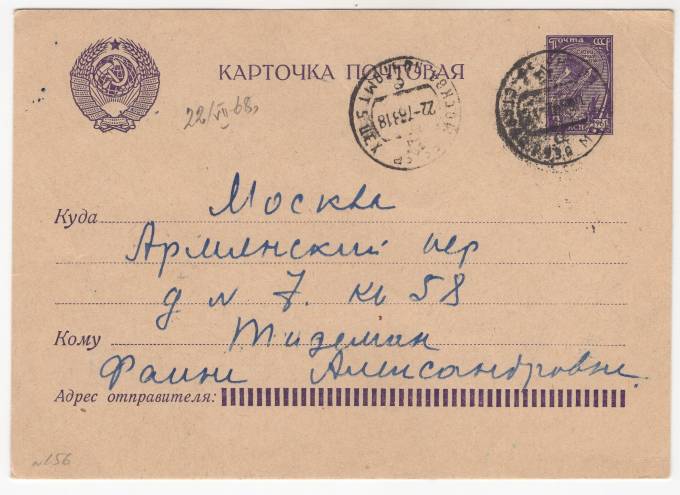 КАРТОЧКА ПОЧТОВАЯ
ПОЧТА СССР
22/VII 68
МОСКВА
22-7 6318
Куда Москва
Армянский пер
д N 7. кв 58
Кому Тидеман
Фаине Александровне.
Адрес отправителя:
N156